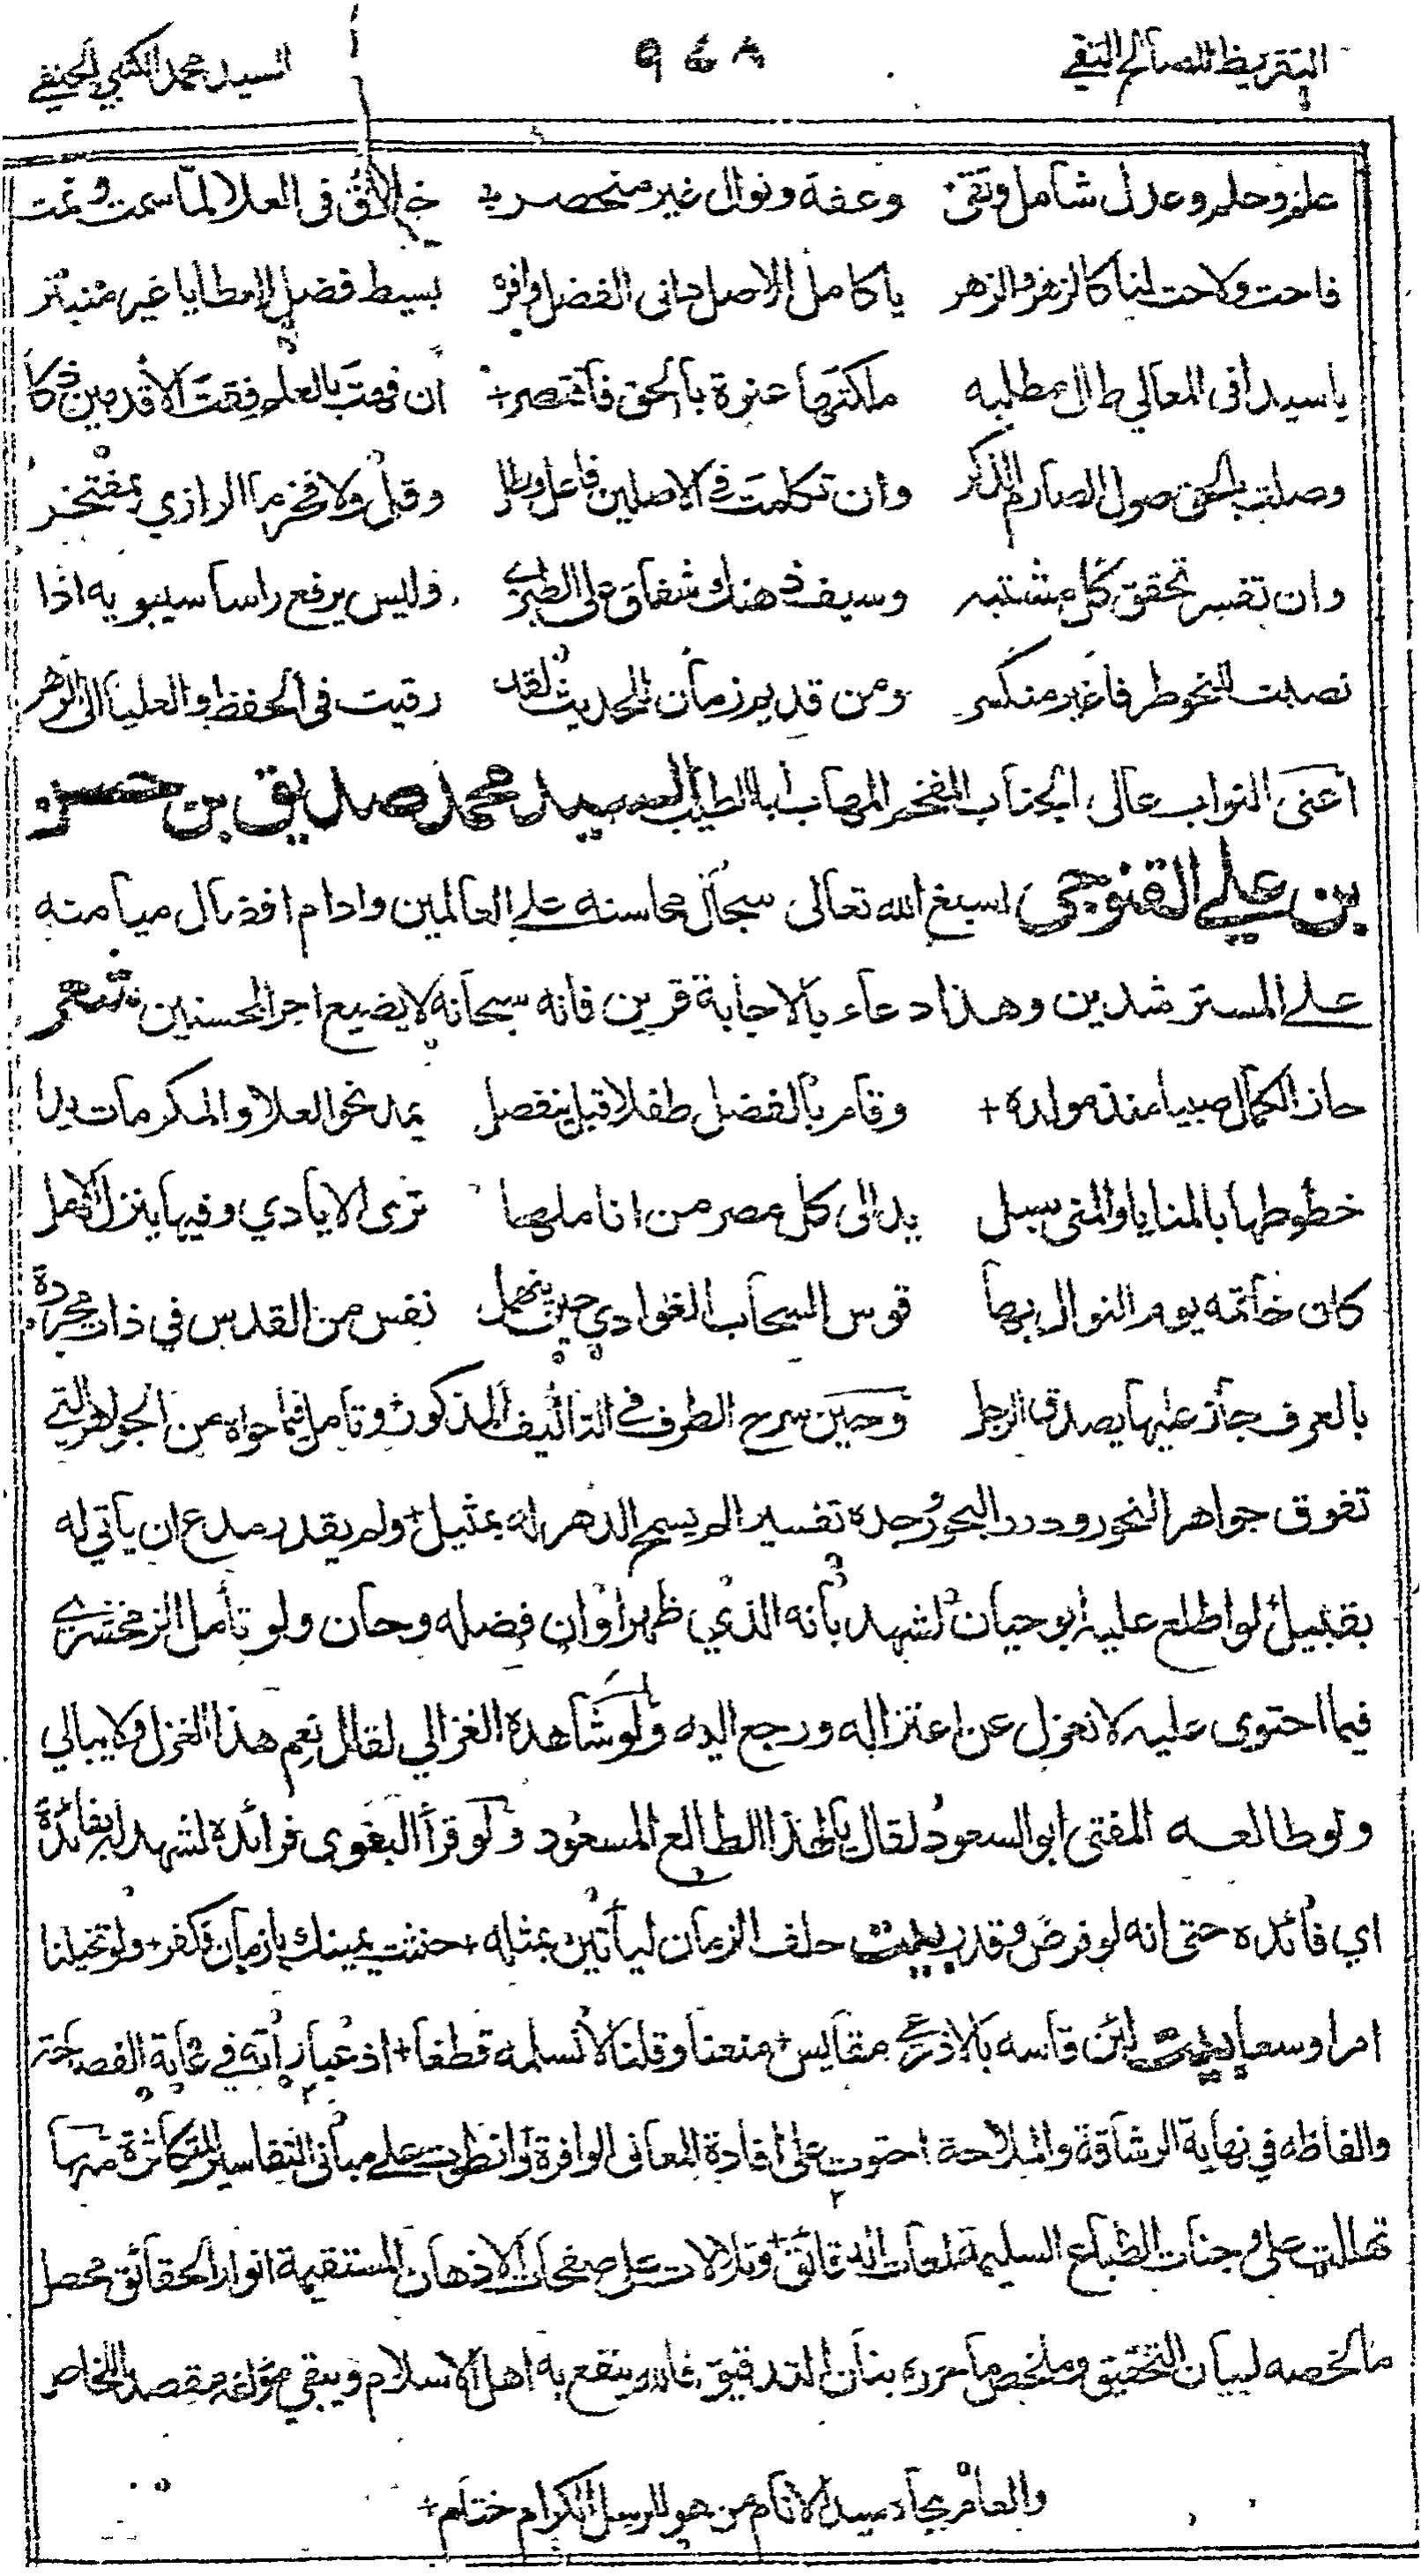 التقريظ للصالح التقي ٩٤٨ السيد محمد الكتبي الحنفي
علم وحلم وعدل شامل وتقى وعفة ونوال غير منحصر خلائق في العلا لما سمت ونمت
فاحت ولاحت لنا كالزهر والزهر يا كامل الاصل داني الفضل وافره بسيط فضل العطايا غير منبتر
يا سيدا في المعالي طال مطلبه ملكتها عنوة بالحق فاقتصر + ان فهت بالعلم فقت الاقدمين ذكا
وصلت بالحق صول الصارم الذكر وان تكلمت في الاصلين فاعل وطل وقل ولا فخر ما الرازي بمفتخر
وان تفسر تحقق كل مشتبه وسيف ذهنك شفاق على الطبري وليس يرفع راسا سيبويه اذا
نصبت للنحو طرفا غير منكسر ومن قديم زمان للحديث لقد رقيت في الحفظ والعليا الى الزهر
اعني النواب عالى الجناب المفخم المهاب ابا الطيب السيد محمد صديق بن حسن
بن علي القنوجي اسبغ الله تعالى سجال محاسنه على العالمين وادام افضال ميامنه
على المسترشدين وهذا دعاء بالاجابة قرين فانه سبحانه لا يضيع اجر المحسنين شعر
حاز الكمال صبيا منذ مولده + وقام بالفضل طفلا قبل ينفصل يمد نحو العلا والمكرمات يدا
خطوطها بالمنايا والمنى سبل يد الى كل مصر من اناملها ترى الايادي وفيها ينزل الامل
كان خاتمه يوم النوال بها قوس السحاب الغوادي حين ينهمل نفس من القدس في ذات مجردة
بالعرف جاز عليها يصدق الرجل وحين سرح الطرف في التأليف المذكور وتأمل فيما حواه من الجواهر التي
تفوق جواهر النحور ودرر البحور وجده تفسيرا لم يسمح الدهر له بمثيل + ولم يقدر مدع ان يأتي له
بقبيل لو اطلع عليه ابو حيان لشهد بأنه الذي ظهر اوان فضله وحان ولو تأمل الزمخشري
فيما احتوى عليه لانعزل عن اعتزاله ورجع اليه ولو شاهده الغزالي لقال نعم هذا الغزل ولا يبالي
ولو طالعه المفتي ابو السعود لقال يا لهذا الطالع المسعود ولو قرأ البغوي فرائده لشهد له بفائدة
اي فائده حتى انه لو فرض وقدر بيت حلف الزمان ليأتين بمثله + حنثت يمينك يا زمان فكفر + ولو تخيلنا
امرا وسعا بيت لئن قاسه بالاذ مقايس + منعنا وقلنا لا نسلمه قطعا + اذ عباراته في غاية الفصاحة
والفاظه في نهاية الرشاقة والملاحة احتوت على افادة المعاني الوافرة وانطوت على مباني التفاسير المتكاثرة منها
تهاللت على وجنات الطباع السليمة لمعات الدقائق + وتلالات على صفحات الاذهان المستقيمة انوار الحقائق محصل
ما لخصه لبيان التحقيق وملخص ما حرره بنان التدقيق فالله ينفع به اهل الاسلام ويبقي مؤلفه مقصدا للخاص
والعام بجاه سيد الانام من هو للرسل الكرام ختام +